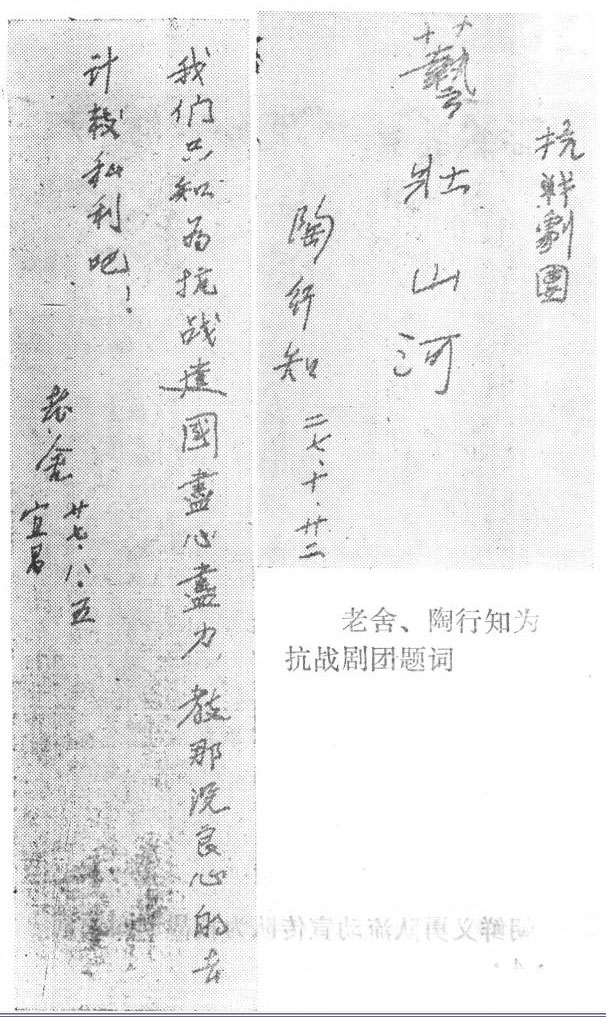 抗戰劇團
藝壯山河
陶行知 二七、十、廿二
我们只知为抗战建國盡心盡力，教那没良心的去
计较私利吧！
老舍 廿七、八、五
宜昌
老舍、陶行知为
抗战剧团题词